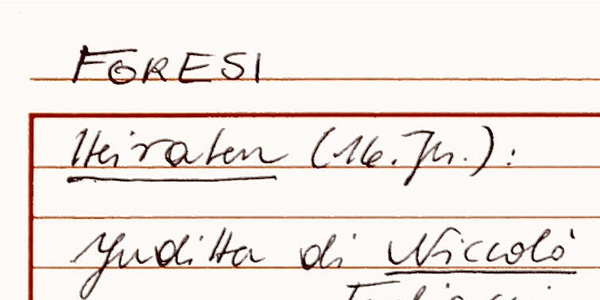 FORESI
Heiraten (16. Jh.):
Giuditta di Niccolò